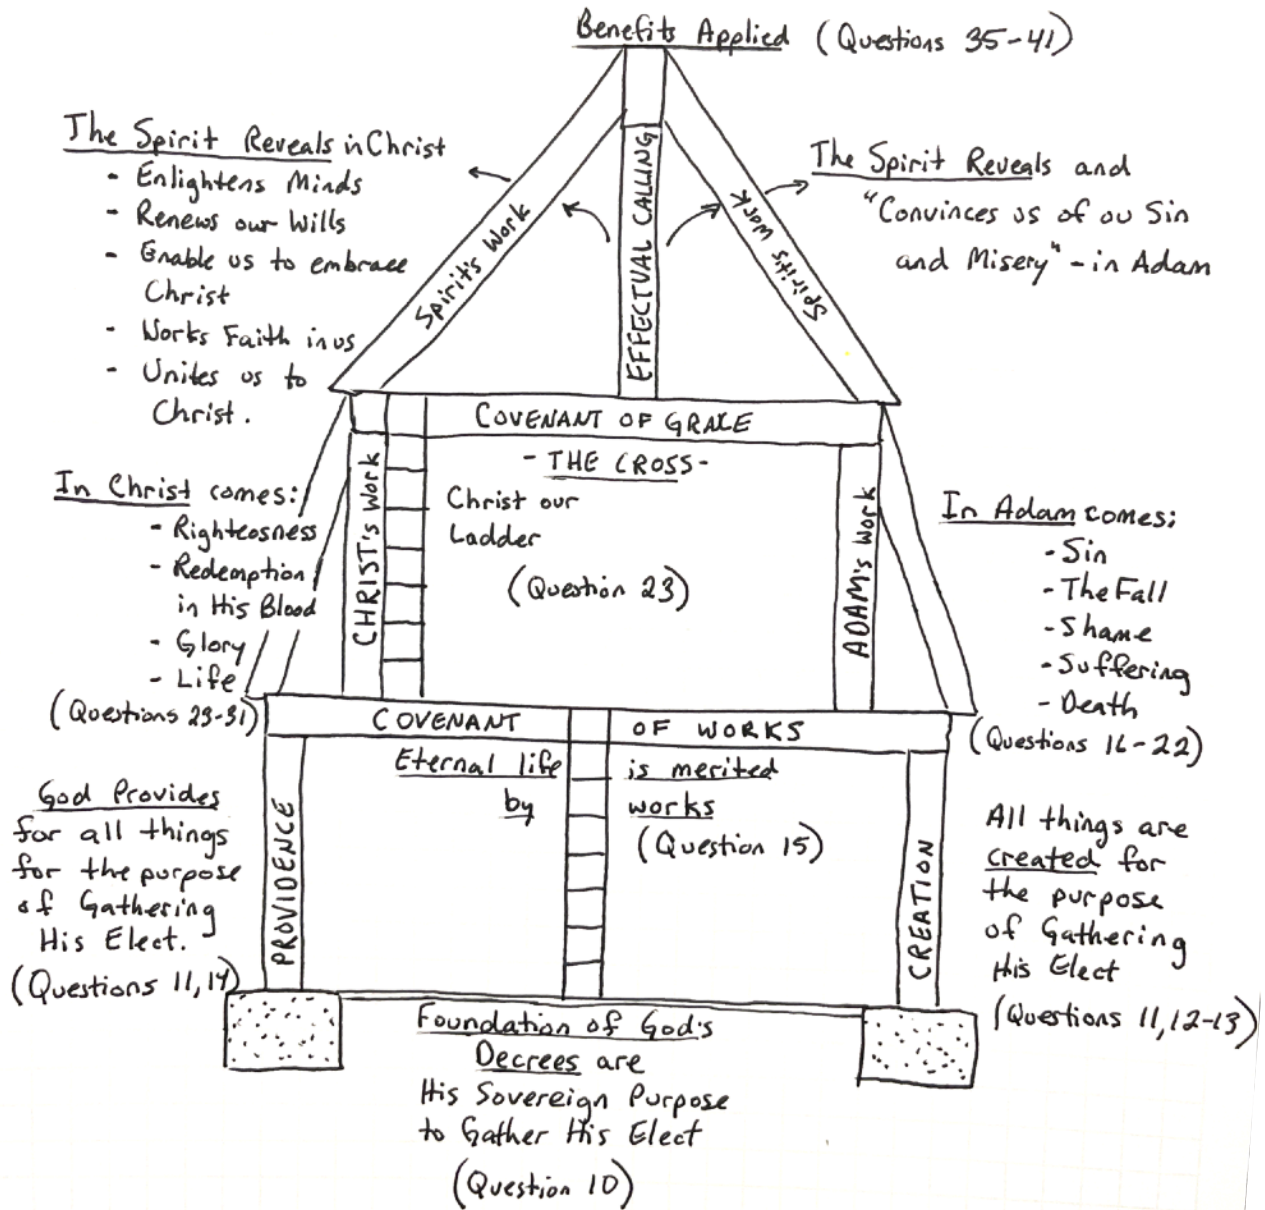 Benefits Applied (Questions 35-41)
The Spirit Reveals in Christ
- Enlightens Minds
- Renews our Wills
- Enable us to embrace
Christ
- Works Faith in us
- Unites us to
Christ.
Spirit's Work
EFFECTUAL CALLING
Spirit's Work
The Spirit Reveals and
"Convinces us of ou Sin
and Misery" - in Adam
COVENANT OF GRACE
- THE CROSS -
Christ our
Ladder
(Question 23)
CHRIST's Work
ADAM's Work
In Christ comes:
- Righteosness
- Redemption
in His Blood
- Glory
- Life
(Questions 23-31)
In Adam comes:
- Sin
- The Fall
- Shame
- Suffering
- Death
(Questions 16-22)
COVENANT OF WORKS
Eternal life is merited
by works
(Question 15)
PROVIDENCE
CREATION
God Provides
for all things
for the purpose
of Gathering
His Elect.
(Questions 11, 14)
All things are
created for
the purpose
of Gathering
His Elect
(Questions 11, 12-13)
Foundation of God's
Decrees are
His Sovereign Purpose
to Gather His Elect
(Question 10)